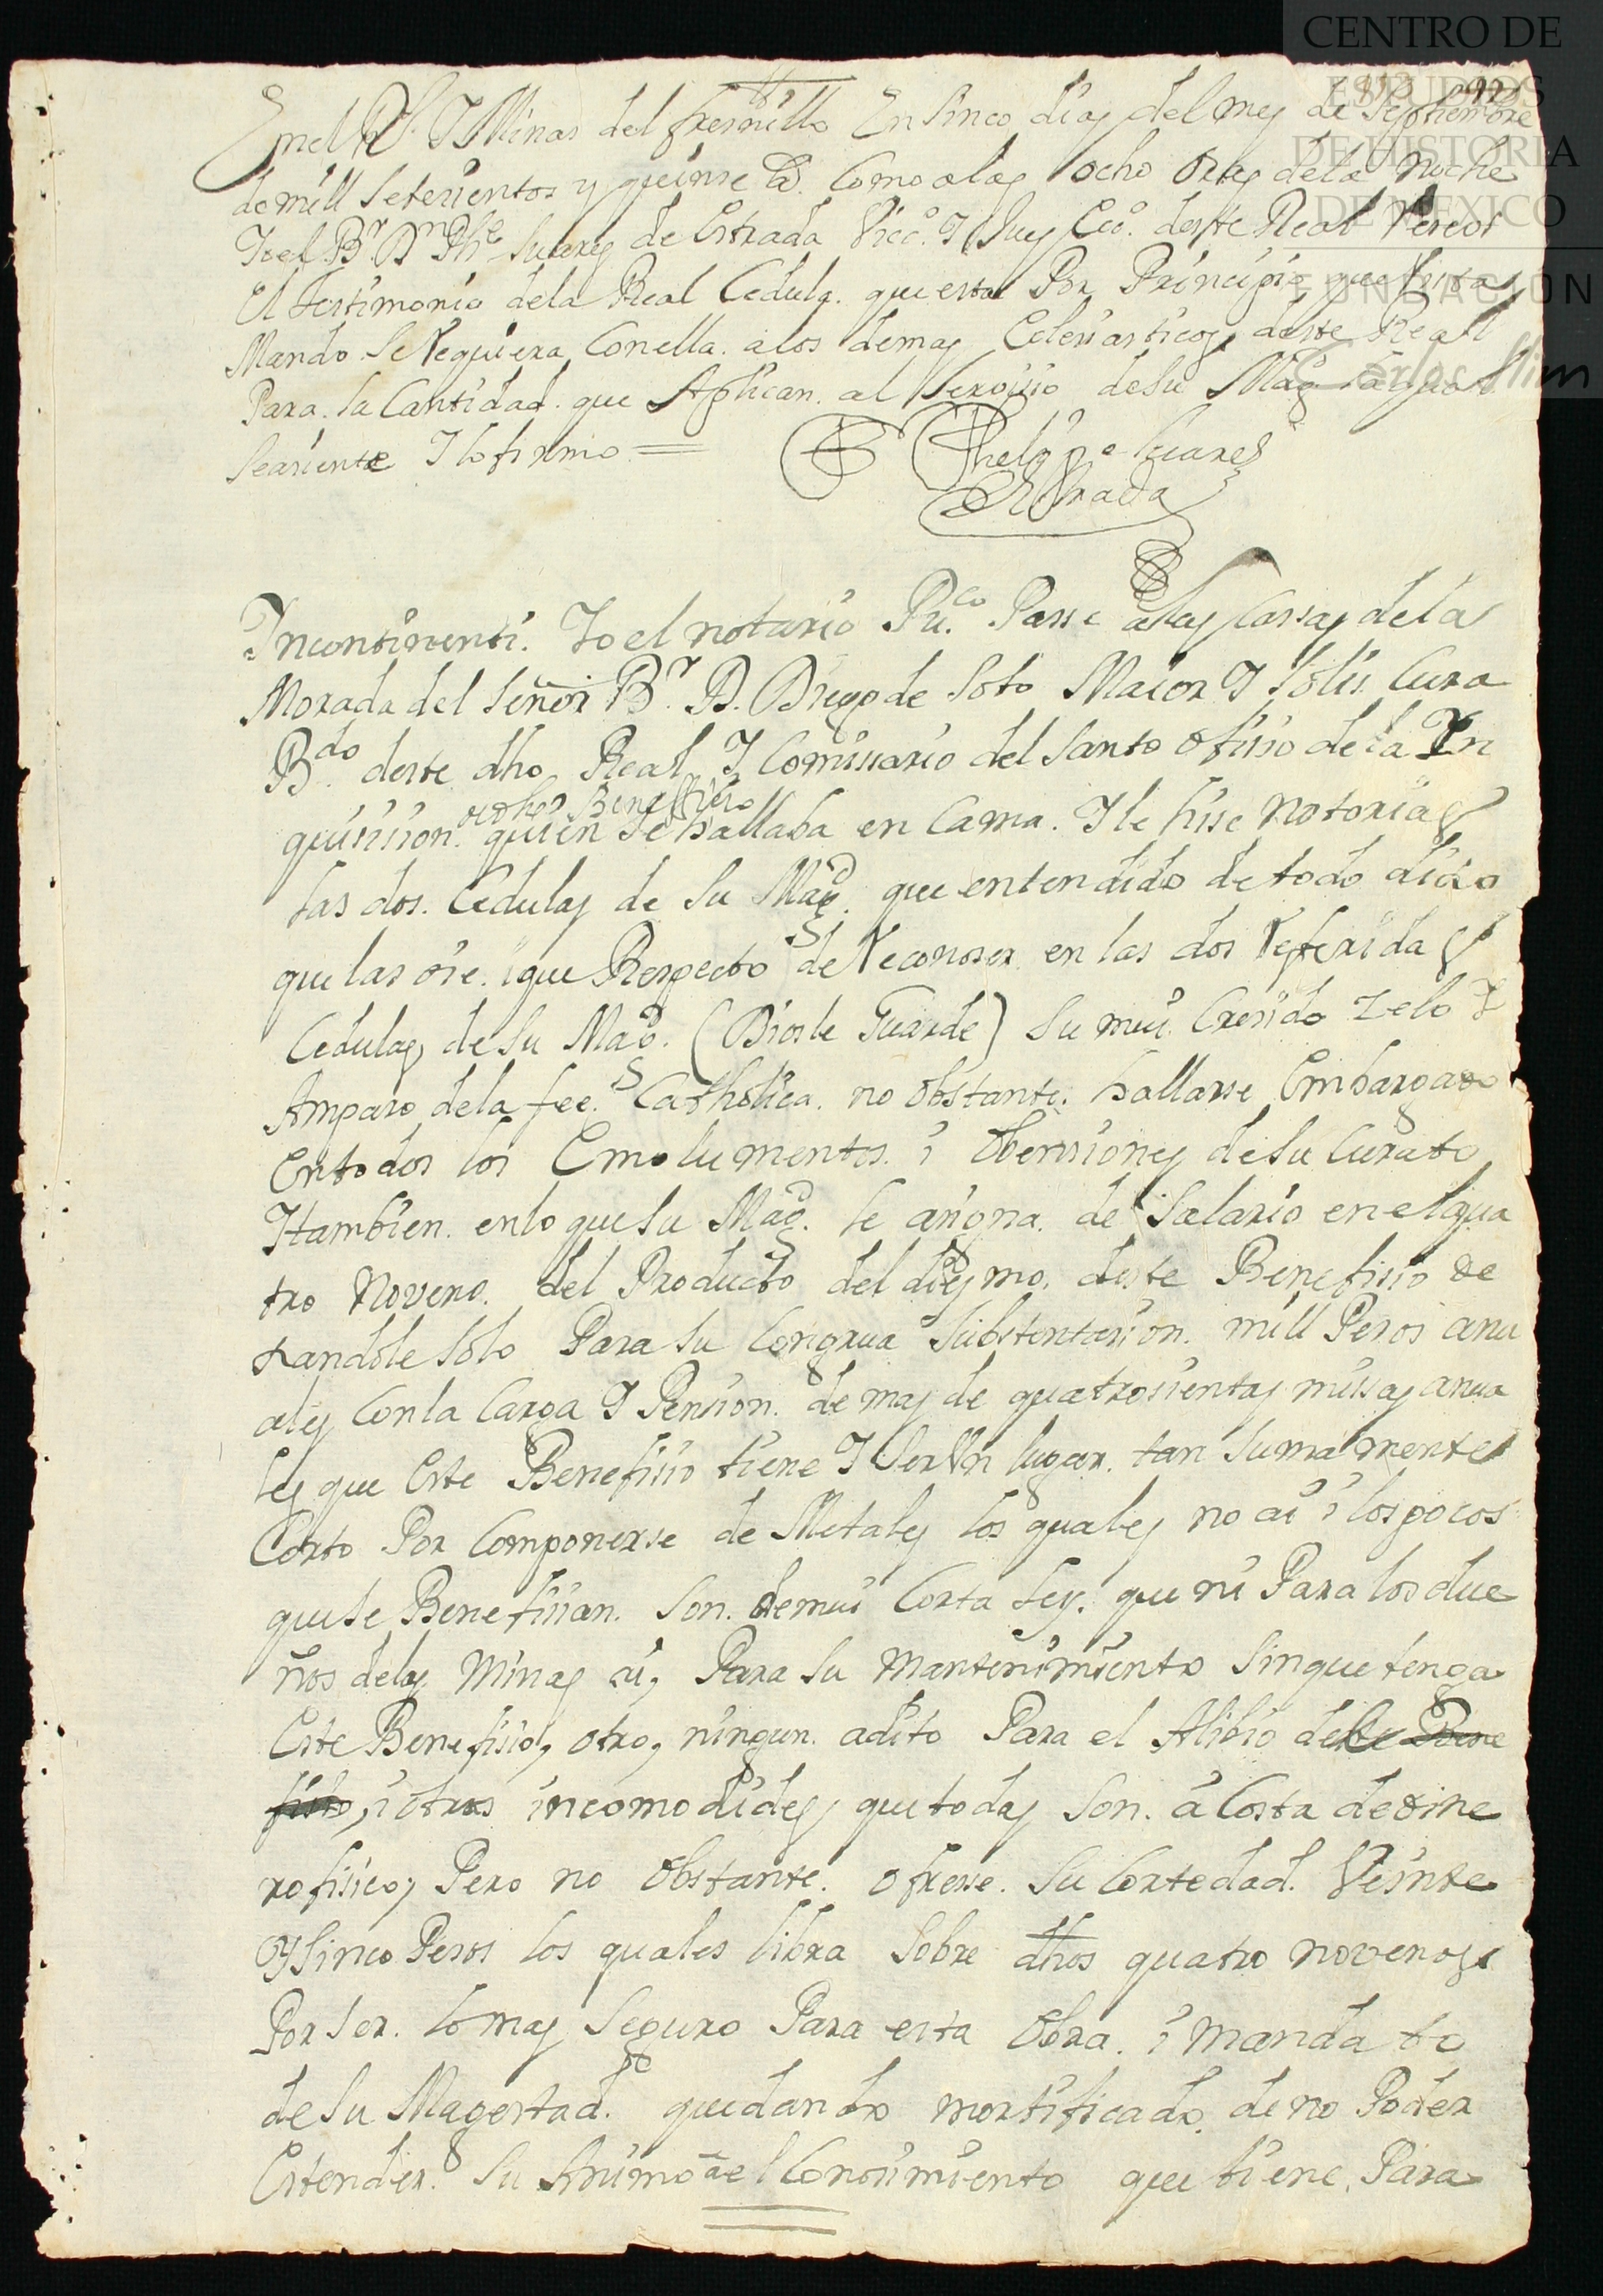 CENTRO DE
ESTUDIOS
DE HISTORIA
DE MÉXICO
FUNDACIÓN
Carlos Slim
En el Rl. I Minas del fresnillo En sinco dias del mes de Septiembre
de mill setesientos y quinse as. Como a las ocho oras de la noche
Io el Br. Dn Phe Suares de Estrada Vico. I Jues Eco. deste Real Resevi
El testimonio de la Real Cedula. que esta Por Prinsipio, que vista
Mando Se Requiera Con ella. a los demas Eclesiasticos, deste Real
Para. la Cantidad. que Aplican. al Servisio de su Magd.
Se asiente I lo firmo =
Phelipe Suares
de Estrada
Incontinenti. Io el notario Puco. Passe a las Cassas de la
Morada del Señor Br. D. Diego de Soto Maior I Solis. Cura
Bdo. deste dho Real, I Comissario del Santo ofisio de la In
quisision. quien se hallaba en Cama. I le hise notorias
las dos. Cedulas de Su Magd. que entendido de todo dixo
que las oie. i que Respecto de Reconoser en las dos Referidas
Cedulas, de Su Magd. (Dios le Guarde) Su mui Cresido zelo I
Amparo de la fee. Catholica. no obstante. hallarse Embargado
en todos los Emolumentos. i obensiones de Su Curato
I tambien. en lo que Su Magd. le asigna. de Salario en el qua
tro noveno. del Producto del diesmo. deste Benefisio de
xandole Solo Para Su Congrua Substentasion. mill Pesos anu
ales Con la Carga I Pension. de mas de quatrosientas missas anua
les que Este Benefisio tiene I Ser Vn lugar. tan Sumamente
Corto Por Componerse de Metales los quales no ai i los pocos
que se Benefisian. Son. de mui Corta Ley. que ni Para los due
ños de las Minas ai, Para Su Mantenimiento Sin que tenga
Este Benefisio, otro, ningun. adito Para el Alibio de
i otras incomodides, que todas Son. a Costa de dine
ro fisico, Pero no obstante. ofrese. Su Cortedad. Veinte
I Sinco Pesos los quales libra Sobre dhos quatro novenos,
Por Ser. lo mas Seguro Para esta Obra. i mandato
de Su Magestad. quedando mortificado, de no Poder
Estender. Su Animo a el Consimiento que tiene. Para